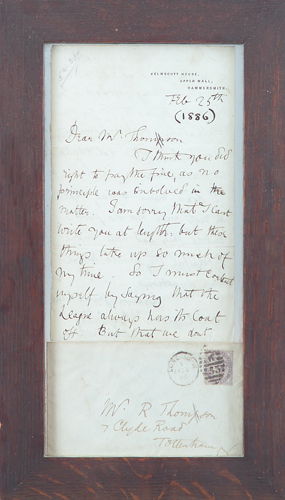 KELMSCOTT HOUSE,
UPPER MALL,
HAMMERSMITH.
Feb 25th
(1886)
Dear Mr Thompson
I think you did
right to pay the fine, as no
principle was involved in the
matter. I am sorry that I can't
write you at length; but these
things take up so much of
my time. So I must content
myself by saying that the
League always has its coat
off. But that we don't
Mr R Thompson
7 Clyde Road
Tottenham